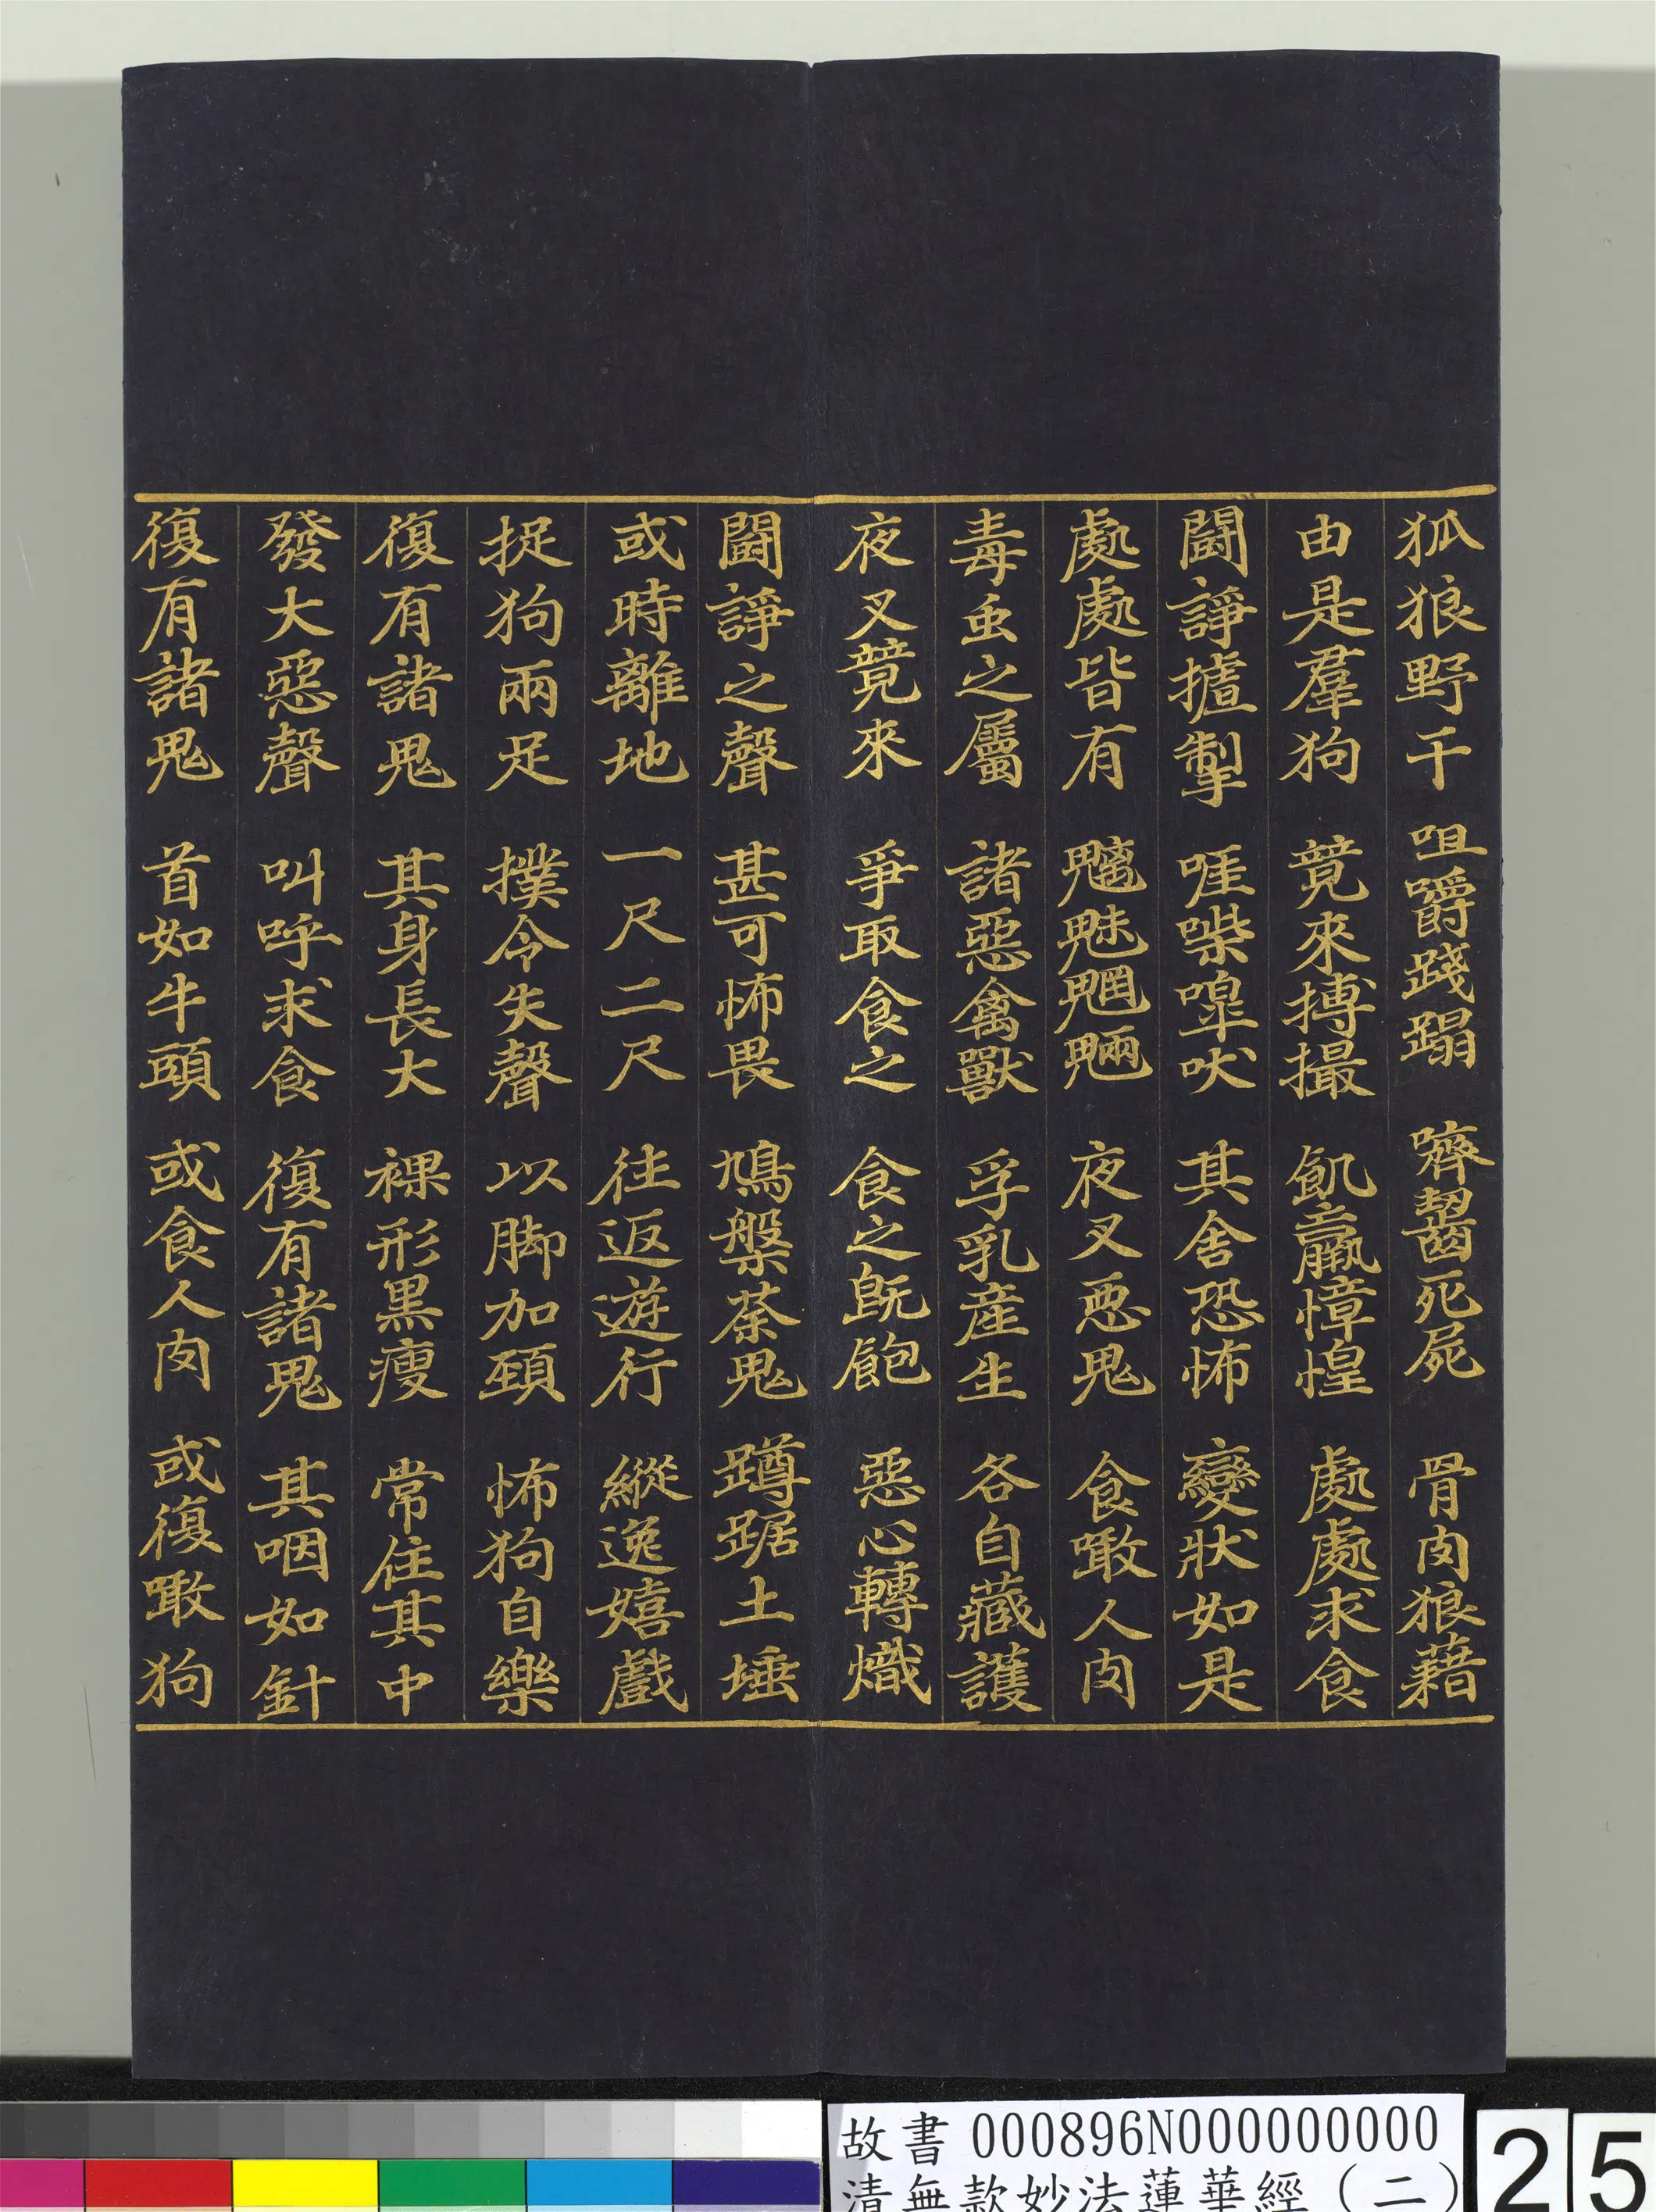 狐狼野干 咀嚼踐蹋 嚌齧死屍 骨肉狼藉
由是羣狗 競來搏撮 飢羸慞惶 處處求食
鬪諍摣掣 啀喍嘷吠 其舍恐怖 變狀如是
處處皆有 魑魅魍魎 夜叉惡鬼 食噉人肉
毒虫之屬 諸惡禽獸 孚乳産生 各自藏護
夜叉競來 爭取食之 食之既飽 惡心轉熾
鬪諍之聲 甚可怖畏 鳩槃荼鬼 蹲踞土埵
或時離地 一尺二尺 往返遊行 縱逸嬉戲
捉狗兩足 撲令失聲 以脚加頸 怖狗自樂
復有諸鬼 其身長大 裸形黑瘦 常住其中
發大惡聲 叫呼求食 復有諸鬼 其咽如針
復有諸鬼 首如牛頭 或食人肉 或復噉狗
故書 000896N000000000
清無款妙法蓮華經（二）
25